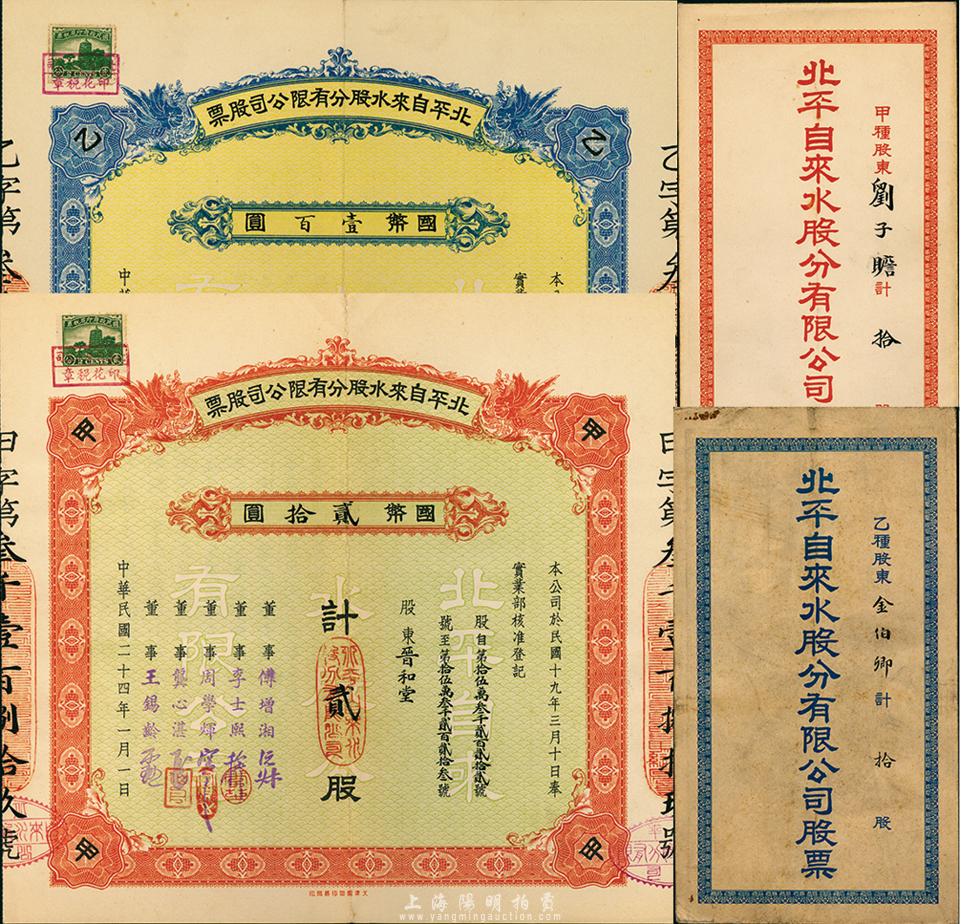 印花稅章
北平自來水股分有限公司股票
乙
乙
國幣壹百圓
乙字第叁
中華
本
實業
2 CENTS
印花稅章
北平自來水股分有限公司股票
甲
甲
國幣貳拾圓
本公司於民國十九年三月十日奉
實業部核准登記
股自第拾伍萬叁千貳百貳拾貳號
號至第拾伍萬叁千貳百貳拾叁號
股東晉和堂
計貳股
董事傅增湘
董事李士熙
董事周學輝
董事龔心湛
董事王錫齡
中華民國二十四年一月一日
甲字第叁千壹百捌拾玖號
北平自來水
有限公
甲
甲
北平自來水股分有限公司
甲種股東劉子瞻計拾
乙種股東金伯卿計拾股
北平自來水股分有限公司股票
上海陽明拍賣
www.yangmingauction.com